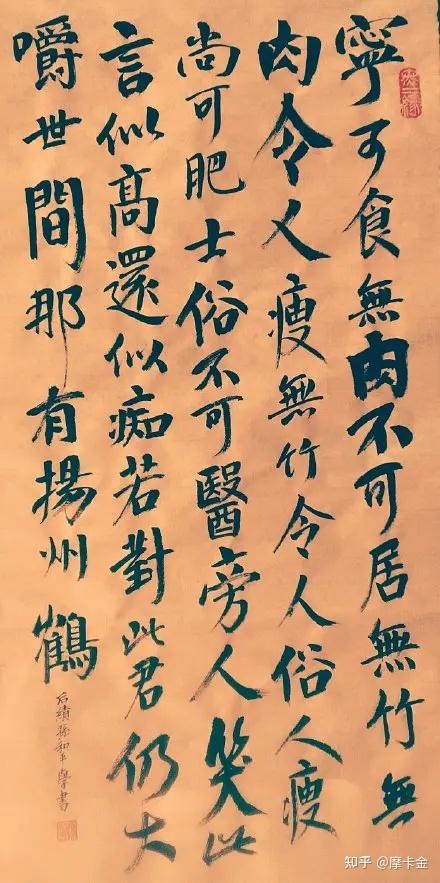 寧可食無肉不可居無竹無
肉令人瘦無竹令人俗人瘦
尚可肥士俗不可醫旁人笑此
言似髙還似痴若對此君仍大
嚼世間那有揚州鶴
孫和平學書
知乎 @摩卡金